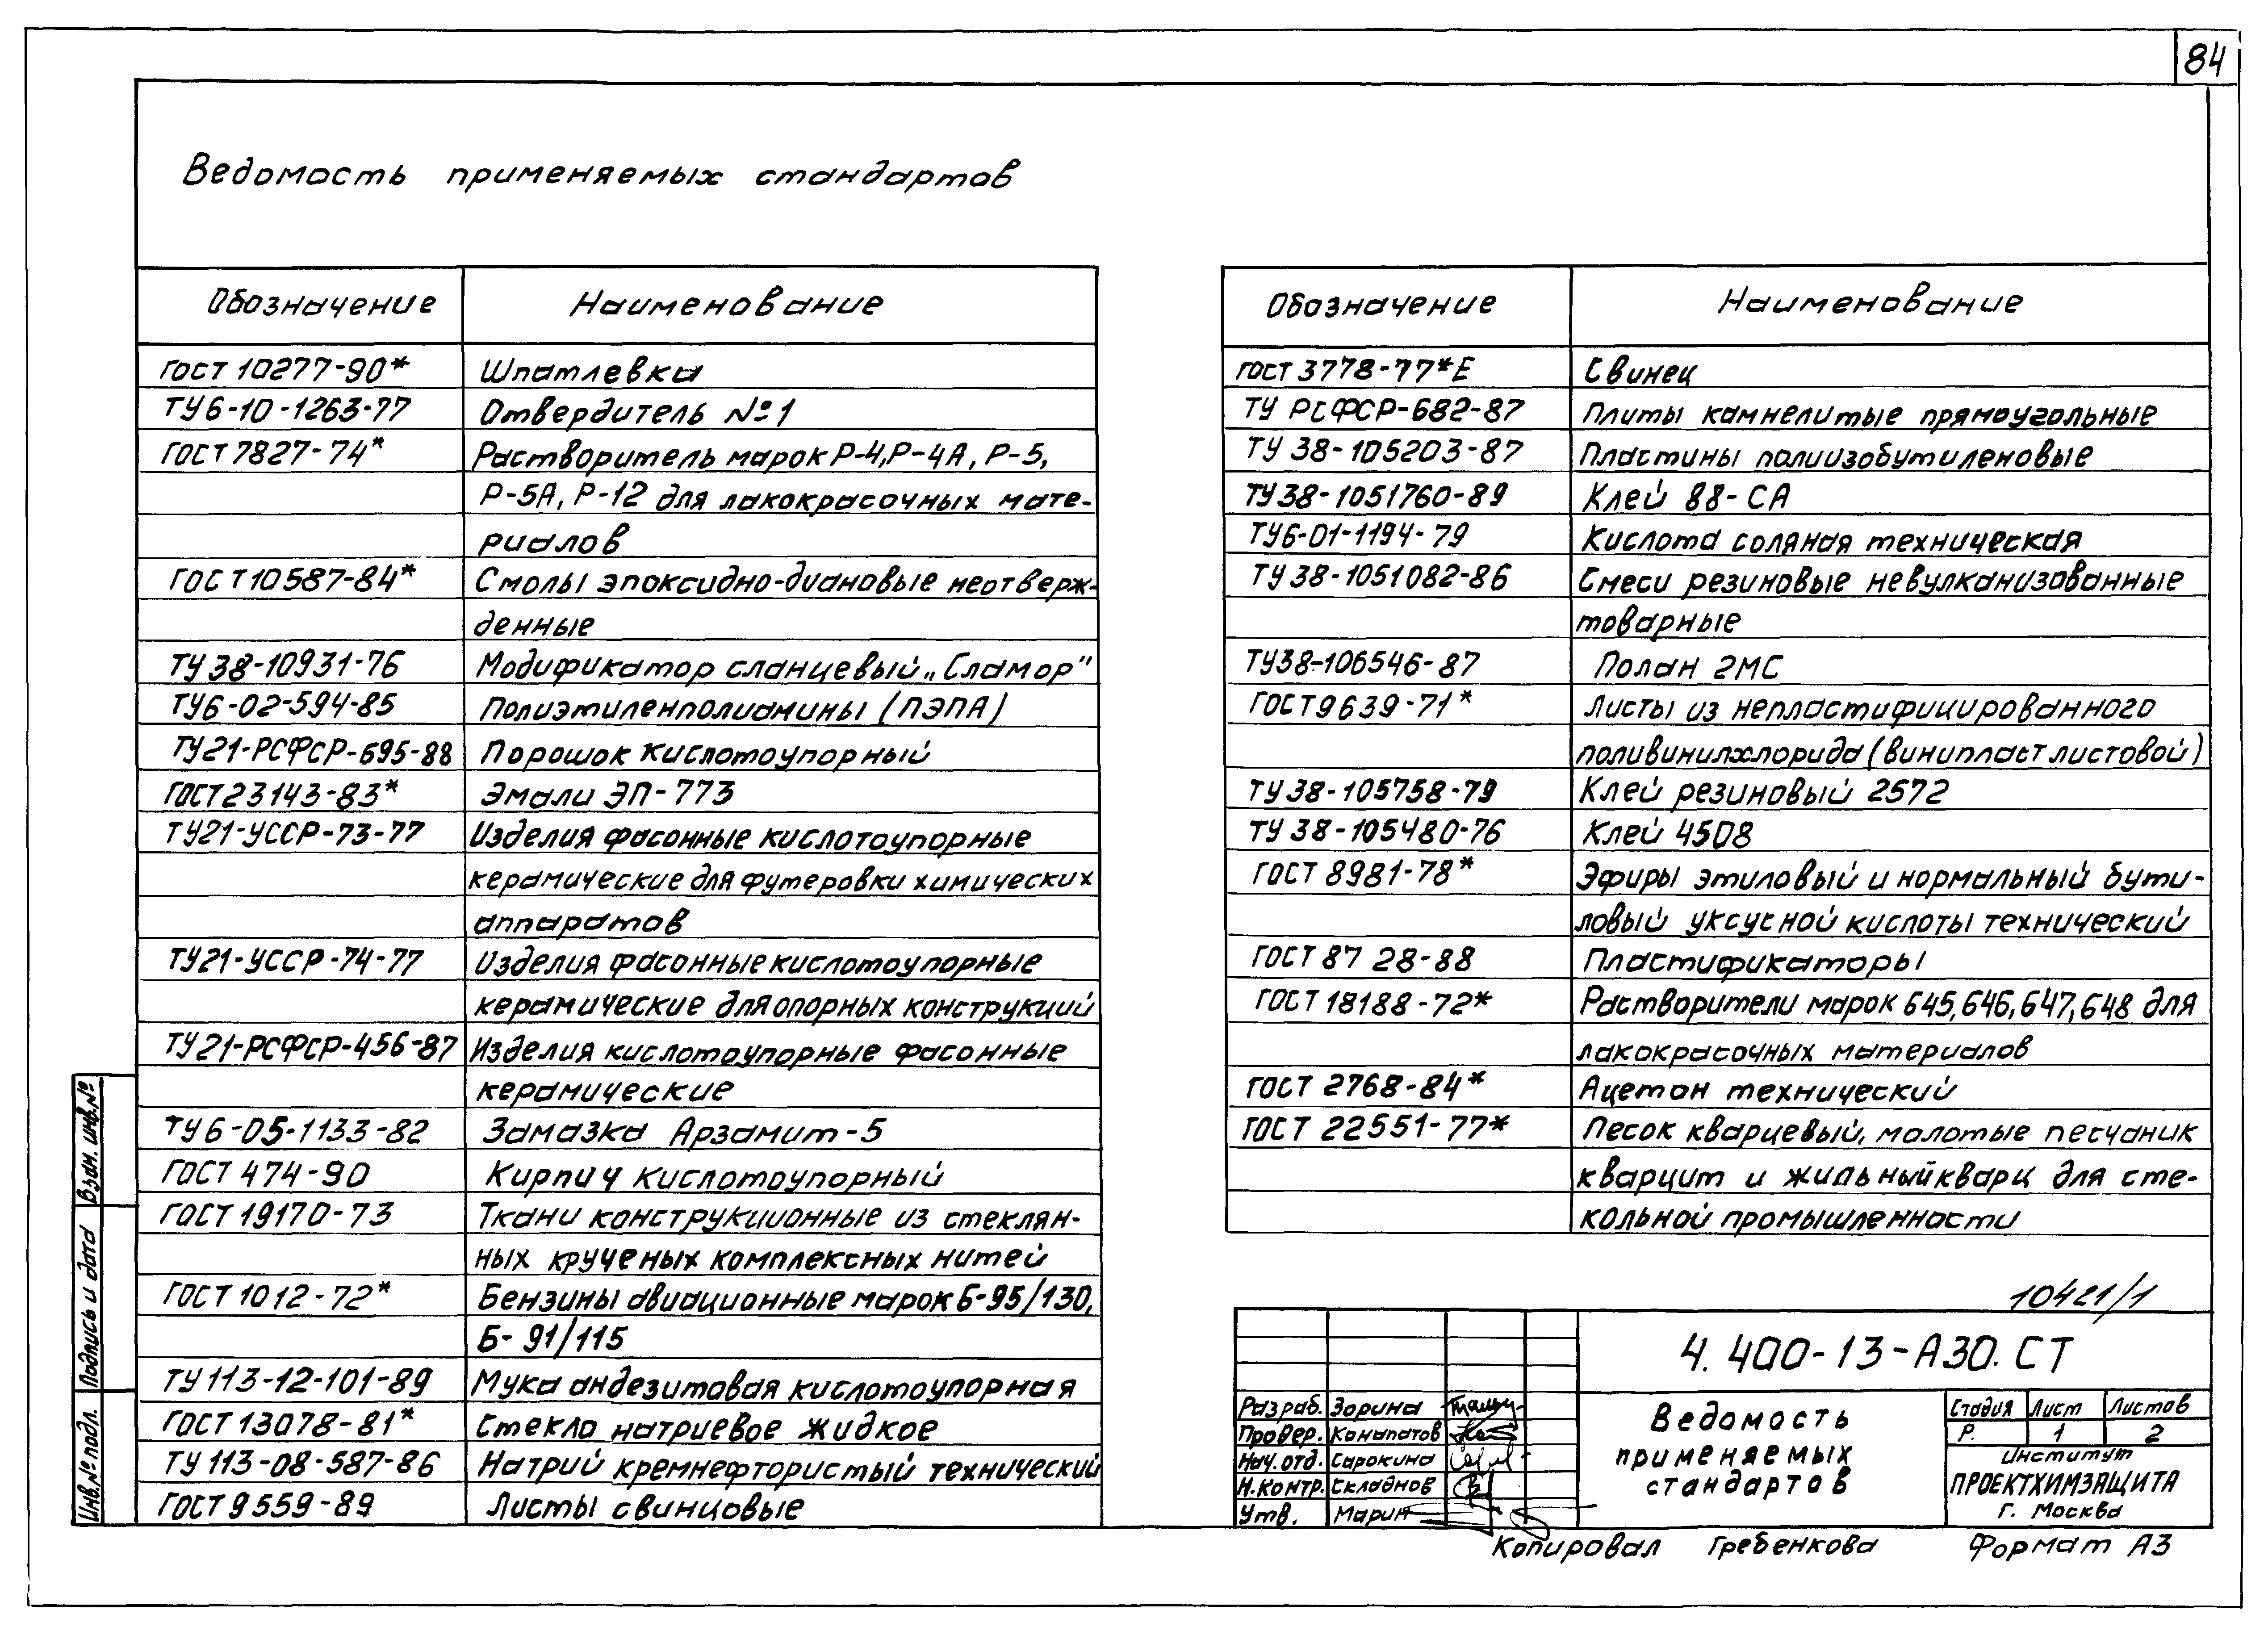 84
Ведомость применяемых стандартов
Обозначение Наименование
ГОСТ 10277-90* Шпатлевка
ТУ6-10-1263-77 Отвердитель №1
ГОСТ 7827-74* Растворитель марок Р-4, Р-4А, Р-5,
Р-5А, Р-12 для лакокрасочных мате-
риалов
ГОСТ 10587-84* Смолы эпоксидно-диановые неотверж-
денные
ТУ 38-10931-76 Модификатор сланцевый „Сламор"
ТУ6-02-594-85 Полиэтиленполиамины (ПЭПА)
ТУ21-РСФСР-695-88 Порошок кислотоупорный
ГОСТ 23143-83* Эмали ЭП-773
ТУ21-УССР-73-77 Изделия фасонные кислотоупорные
керамические для футеровки химических
аппаратов
ТУ21-УССР-74-77 Изделия фасонные кислотоупорные
керамические для опорных конструкций
ТУ21-РСФСР-456-87 Изделия кислотоупорные фасонные
керамические
ТУ6-05-1133-82 Замазка Арзамит-5
ГОСТ 474-90 Кирпич кислотоупорный
ГОСТ 19170-73 Ткани конструкционные из стеклян-
ных крученых комплексных нитей
ГОСТ 1012-72* Бензины авиационные марок Б-95/130,
Б-91/115
ТУ 113-12-101-89 Мука андезитовая кислотоупорная
ГОСТ 13078-81* Стекло натриевое жидкое
ТУ 113-08-587-86 Натрий кремнефтористый технический
ГОСТ 9559-89 Листы свинцовые
Обозначение Наименование
ГОСТ 3778-77*Е Свинец
ТУ РСФСР-682-87 Плиты камнелитые прямоугольные
ТУ 38-105203-87 Пластины полиизобутиленовые
ТУ38-1051760-89 Клей 88-СА
ТУ6-01-1194-79 Кислота соляная техническая
ТУ 38-1051082-86 Смеси резиновые невулканизованные
товарные
ТУ38-106546-87 Полан 2МС
ГОСТ 9639-71* Листы из непластифицированного
поливинилхлорида (винипласт листовой)
ТУ 38-105758-79 Клей резиновый 2572
ТУ 38-105480-76 Клей 4508
ГОСТ 8981-78* Эфиры этиловый и нормальный бути-
ловый уксусной кислоты технический
ГОСТ 87 28-88 Пластификаторы
ГОСТ 18188-72* Растворители марок 645, 646, 647, 648 для
лакокрасочных материалов
ГОСТ 2768-84* Ацетон технический
ГОСТ 22551-77* Песок кварцевый, молотые песчаник
кварцит и жильный кварц для сте-
кольной промышленности
10421/1
4.400-13-А30.СТ
Разраб. Зорина
Провер. Конопатов
Нач. отд. Сорокина
Н.контр. Складнов
Утв. Марин
Ведомость
применяемых
стандартов
Стадия Лист Листов
Р. 1 2
Институт
ПРОЕКТХИМЗАЩИТА
г. Москва
Копировал Гребенкова Формат А3
Инв.№ подл. Подпись и дата Взам. инв.№